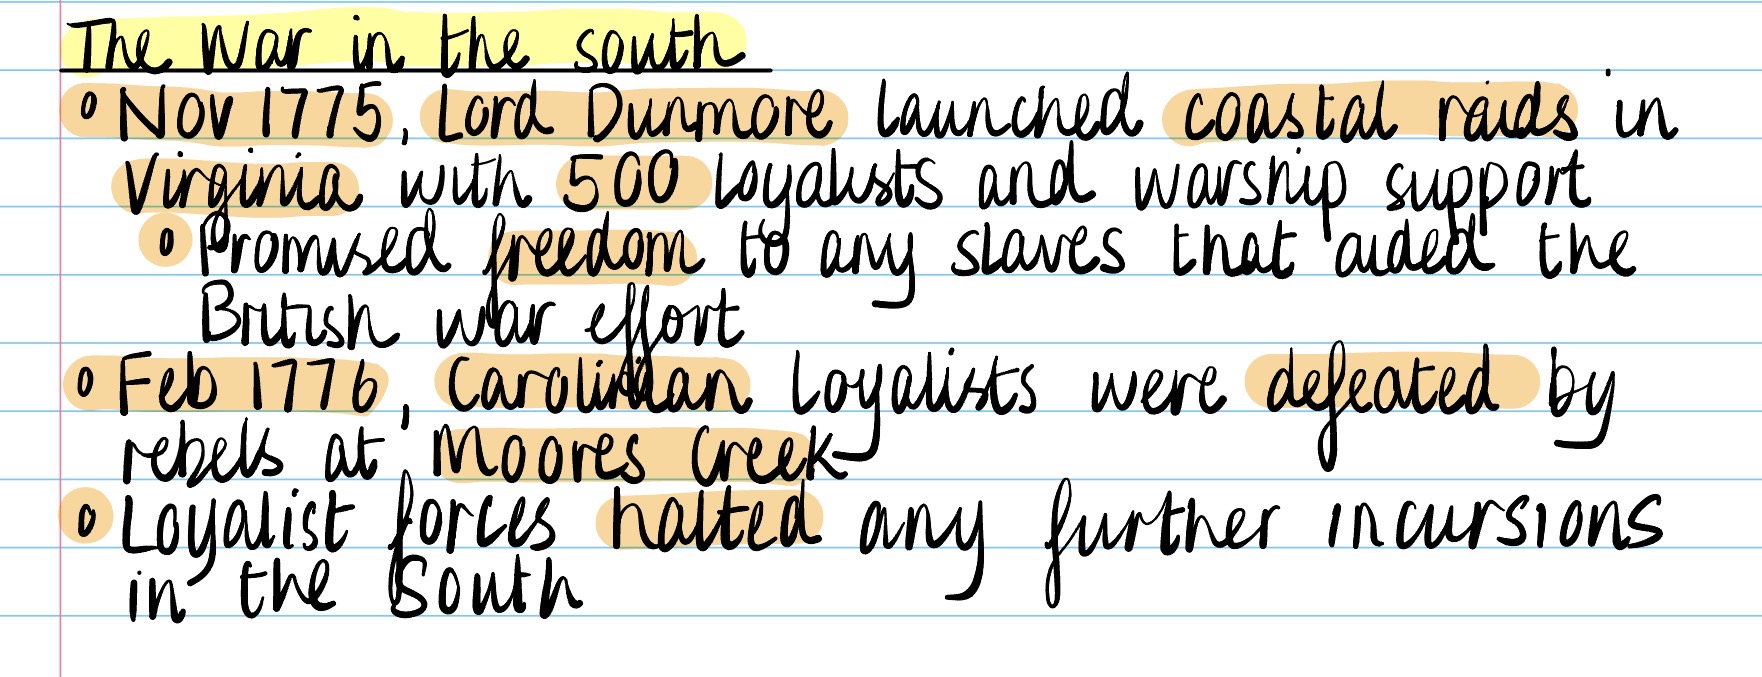 The War in the south
◦ Nov 1775, Lord Dunmore launched coastal raids in
Virginia with 500 loyalists and warship support
◦ Promised freedom to any slaves that aided the
British war effort
◦ Feb 1776, Carolinian Loyalists were defeated by
rebels at Moores Creek
◦ Loyalist forces halted any further incursions
in the South